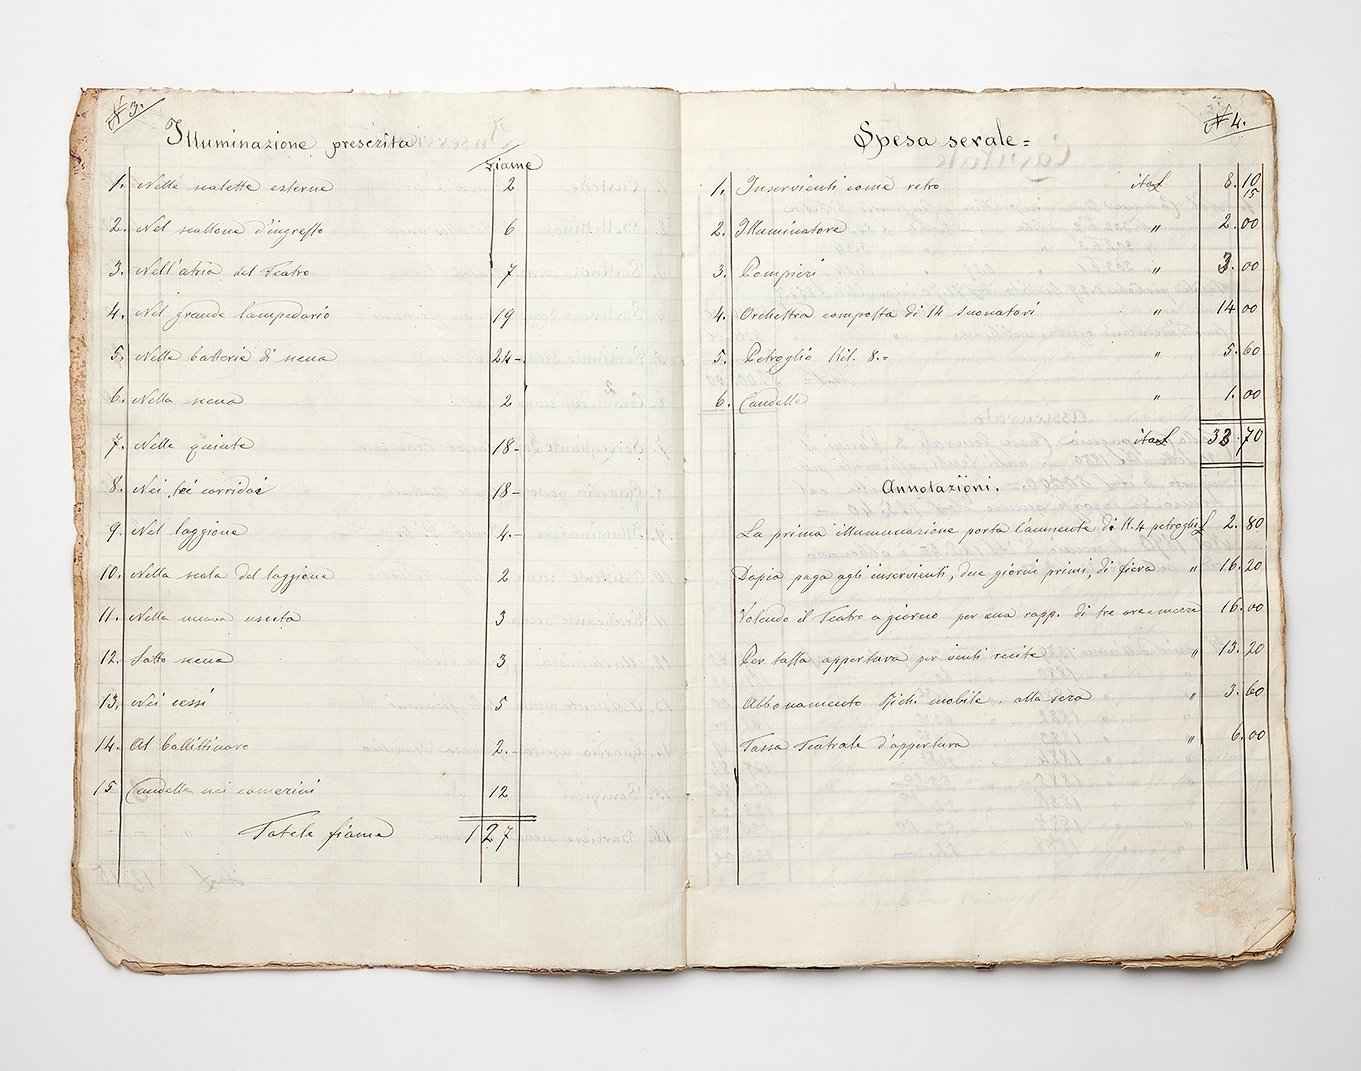 N 3.
Illuminazione prescritta
Fiame
1. Nelle scalette esterne 2
2. Nel scallone d'ingresso 6
3. Nell'atrio del Teatro 7
4. Nel grande lampedario 19
5. Nelle batterie di scena 24 -
6. Nella scena 2
7. Nelle quinte 18 -
8. Nei sei corridoi 18 -
9. Nel loggione 4. -
10. Nella scala del loggione 2
11. Nella nuova uscita 3
12. Sotto scena 3
13. Nei cessi 5
14. Al bollittinaro 2. -
15 Candelle nei camerini 12
Totale fiame 127
N 4.
Spesa serale =
1. Inservienti come retro ital£ 8. 10
15
2. Illuminatore " 2. 00
3. Pompieri " 3. 00
4. Orchestra composta di 14 Suonatori " 14 00
5. Petroglio Kil. 8. = " 5. 60
6. Candelle " 1. 00
ital£ 33. 70
Annotazioni.
La prima illuminazione porta l'aumento di K. 4 petroglio £ 2. 80
Dopia paga agli inservienti, due giorni primi, di fiera " 16. 20
Volendo il Teatro a giorno per una rapp. di tre ore e mezza 16. 00
Per tassa appertura per venti recite " 13. 20
Abbonamento Richi mobile, alla sera " 3. 60
Tassa Teatrale d'appertura " 6. 00